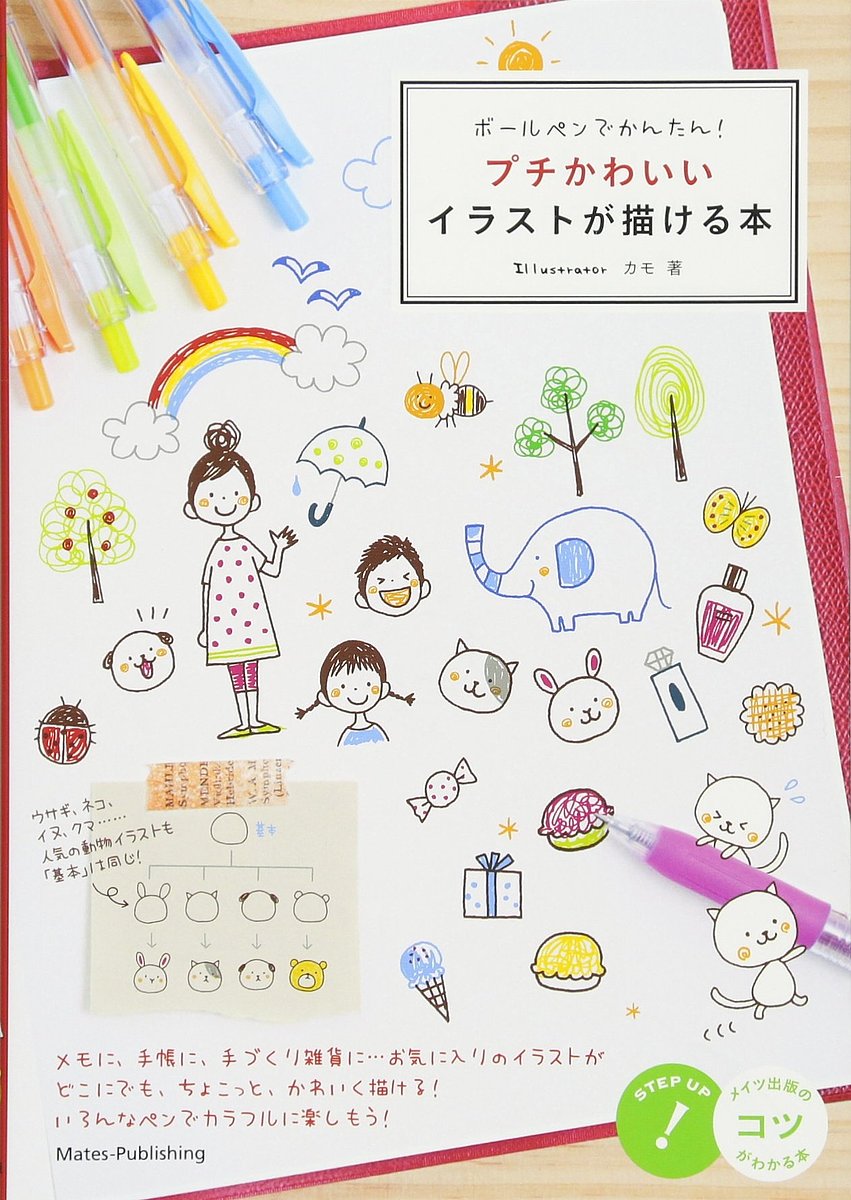 ボールペンでかんたん!
プチかわいい
イラストが描ける本
Illustrator カモ 著
ウサギ、ネコ、
イヌ、クマ……
人気の動物イラストも
「基本」は同じ!
基本
メモに、手帳に、手づくり雑貨に…お気に入りのイラストが
どこにでも、ちょこっと、かわいく描ける!
いろんなペンでカラフルに楽しもう!
Mates-Publishing
STEP UP
!
メイツ出版の
コツ
がわかる本